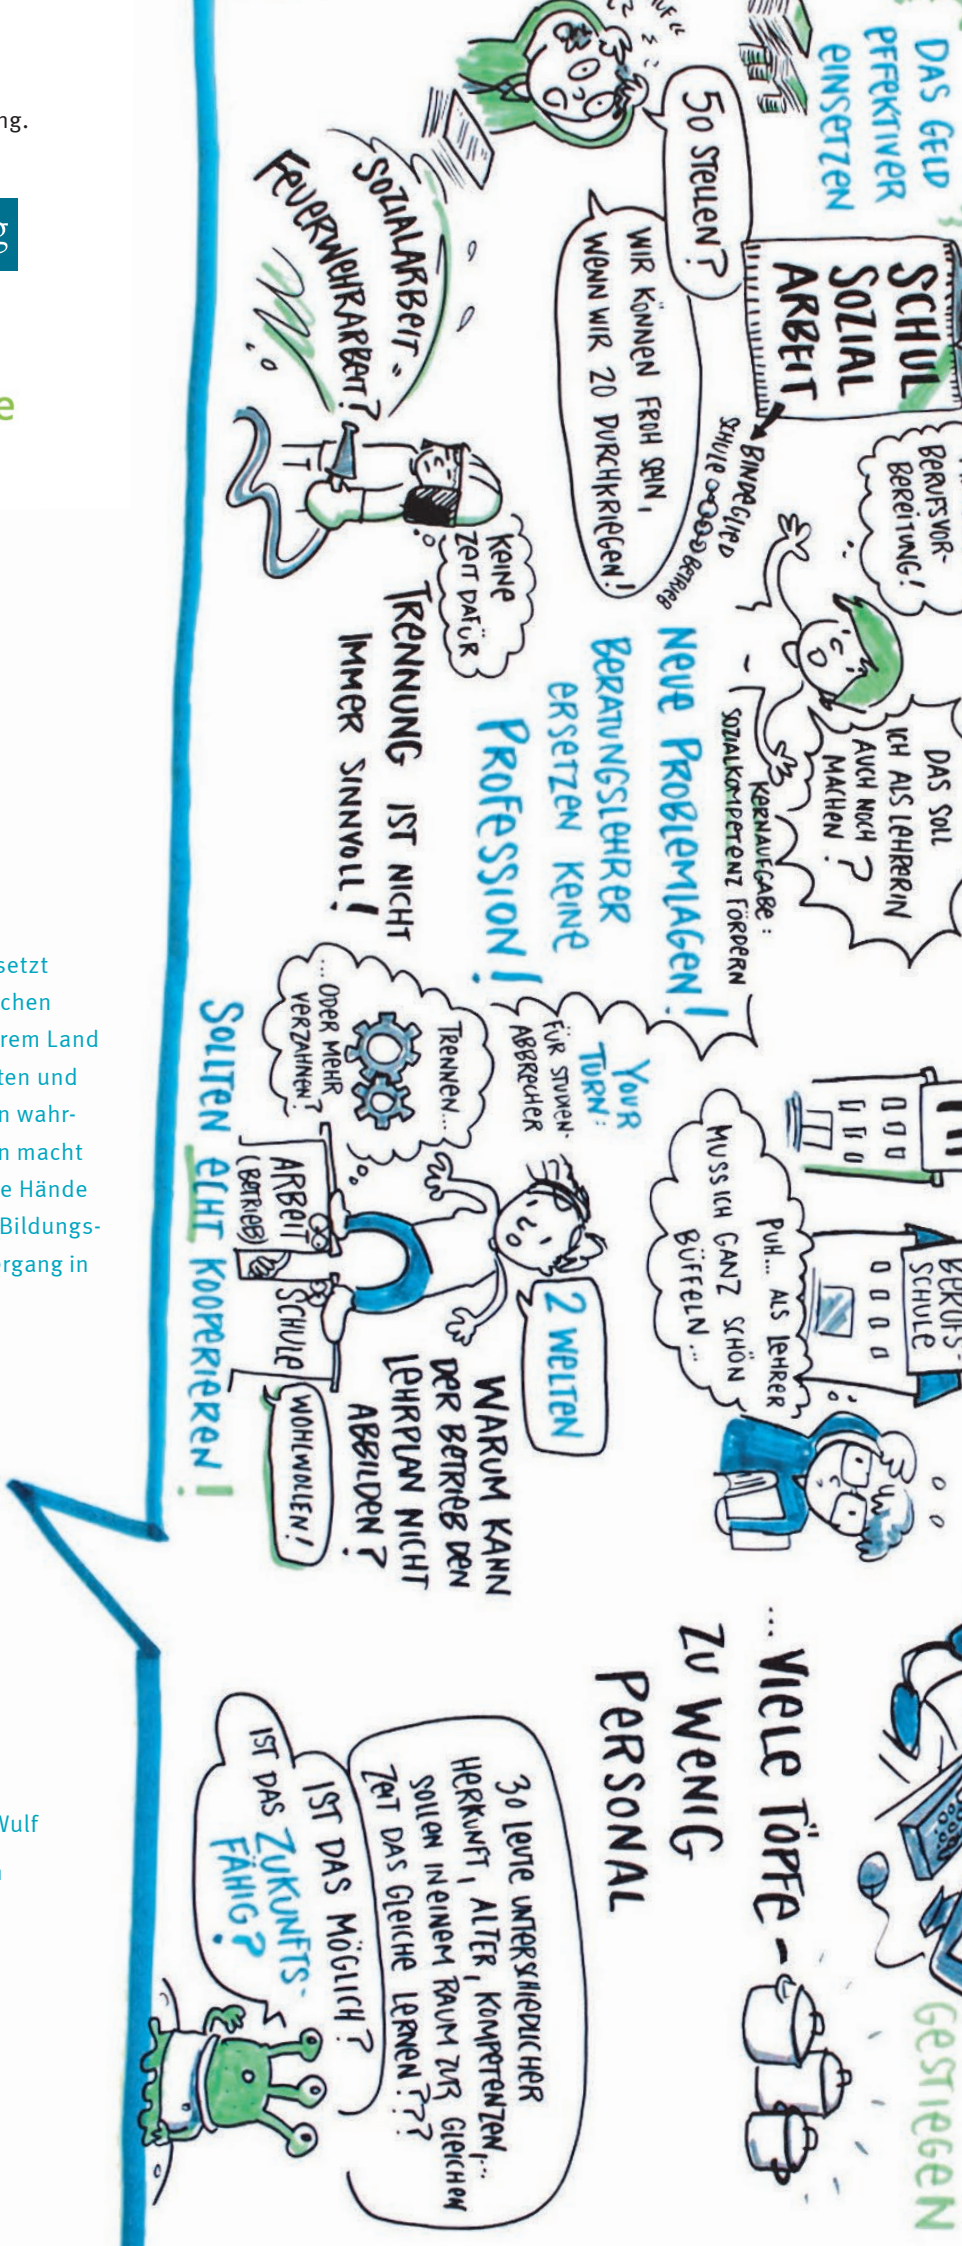 ng.
g
e
setzt
chen
rem Land
ten und
n wahr-
n macht
e Hände
Bildungs-
ergang in
Wulf
DAS GELD
EFFEKTIVER
EINSETZEN
50 STELLEN?
WIR KÖNNEN FROH SEIN,
WENN WIR 20 DURCHKRIEGEN!
SOZIALARBEIT =
FEUERWEHRARBEIT?
SCHUL
SOZIAL
ARBEIT
BINDEGLIED
SCHULE
BETRIEB
KEINE
ZEIT DAFÜR
BERUFSVOR-
BEREITUNG!
DAS SOLL
ICH ALS LEHRERIN
AUCH NOCH
MACHEN?
KERNAUFGABE:
SOZIALKOMPETENZ FÖRDERN
NEUE PROBLEMLAGEN!
BERATUNGSLEHRER
ERSETZEN KEINE
PROFESSION!
TRENNUNG IST NICHT
IMMER SINNVOLL!
YOUR
TURN:
FÜR STUDIEN-
ABBRECHER
TRENNEN...
...ODER MEHR
VERZAHNEN?
ARBEIT
(BETRIEB)
SCHULE
SOLLTEN ECHT KOOPERIEREN!
WOHLWOLLEN!
2 WELTEN
WARUM KANN
DER BETRIEB DEN
LEHRPLAN NICHT
ABBILDEN?
BERUFS-
SCHULE
PUH... ALS LEHRER
MUSS ICH GANZ SCHÖN
BÜFFELN...
... VIELE TÖPFE –
ZU WENIG
PERSONAL
30 LEUTE UNTERSCHIEDLICHER
HERKUNFT, ALTER, KOMPETENZEN,...
SOLLEN IN EINEM RAUM ZUR GLEICHEN
ZEIT DAS GLEICHE LERNEN???
IST DAS MÖGLICH?
IST DAS ZUKUNFTS-
FÄHIG?
GESTIEGEN